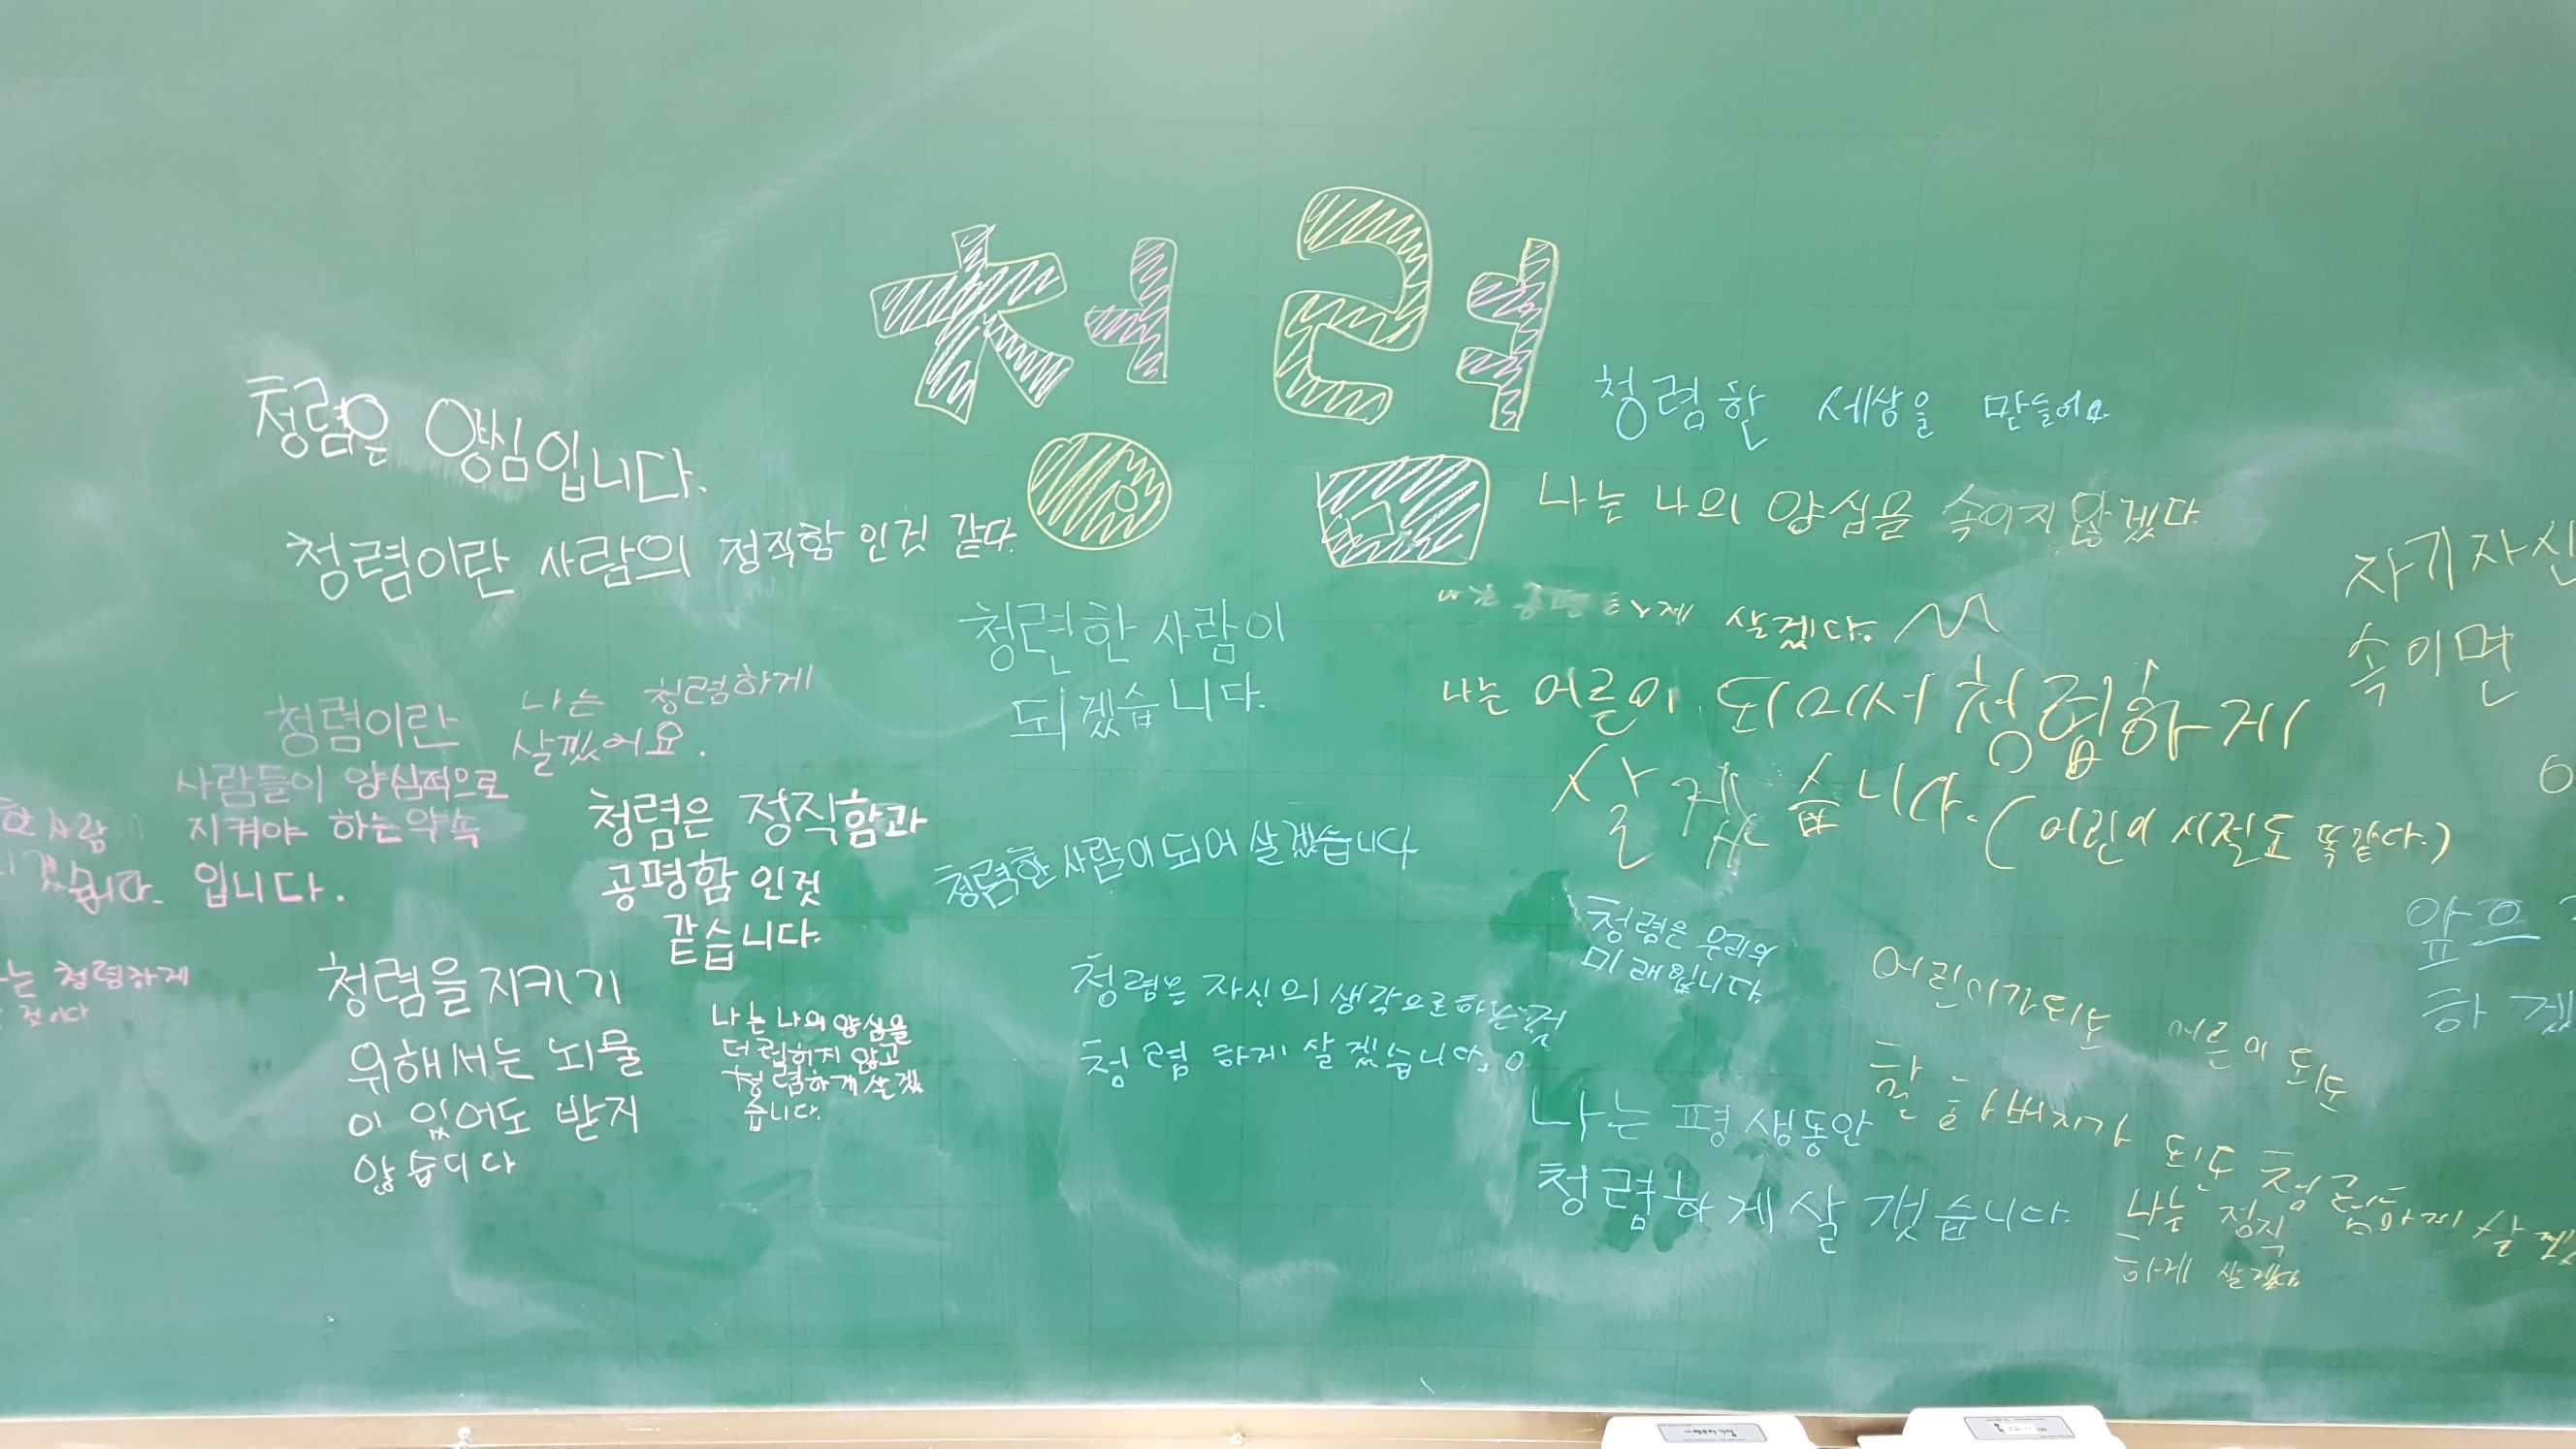 청렴
청렴은 양심입니다.
청렴이란 사람의 정직함 인것 같다.
청렴이란
사람들이 양심적으로
지켜야 하는약속
입니다.
나는 청렴하게
살겠어요.
한 사람
습니다.
는 청렴하게
것이다
청렴은 정직함과
공평함 인것
같습니다.
청렴을 지키기
위해서는 뇌물
이 있어도 받지
않습니다
나는 나의 양심을
더럽히지 않고
청렴하게 살겠
습니다.
청련한 사람이
되겠습니다.
청렴한 사람이 되어 살겠습니다
청렴은 자신의 생각으로 하는
청렴 하게 살겠습니다.
청렴한 세상을 만들어요
나는 나의 양심을 속이지 않겠다
살겠다.
나는 어른이 되어서 청렴하게
살겠습니다. (어린이 시절도 똑같다.)
청렴은 우리의
미래입니다.
나는 평생동안
청렴하게 살겟습니다.
어린이가되도 어른이 되도
할아버지가 되도 청렴하게 살겠
나는 정직
하게 살겠다
자기자신
속이면
앞으
하겠